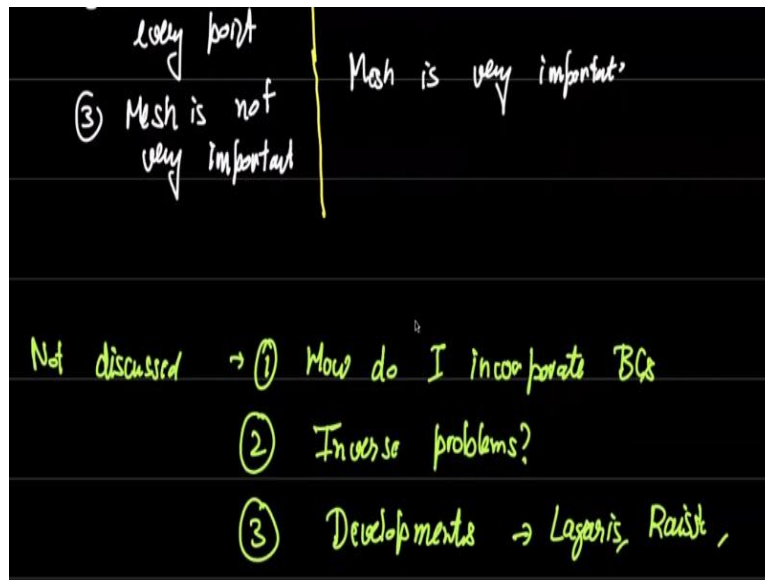 every point
Mesh is very important.
③ Mesh is not
very important
Not discussed → ① How do I incorporate BCs
② Inverse problems?
③ Developments → Lagaris, Raissi,